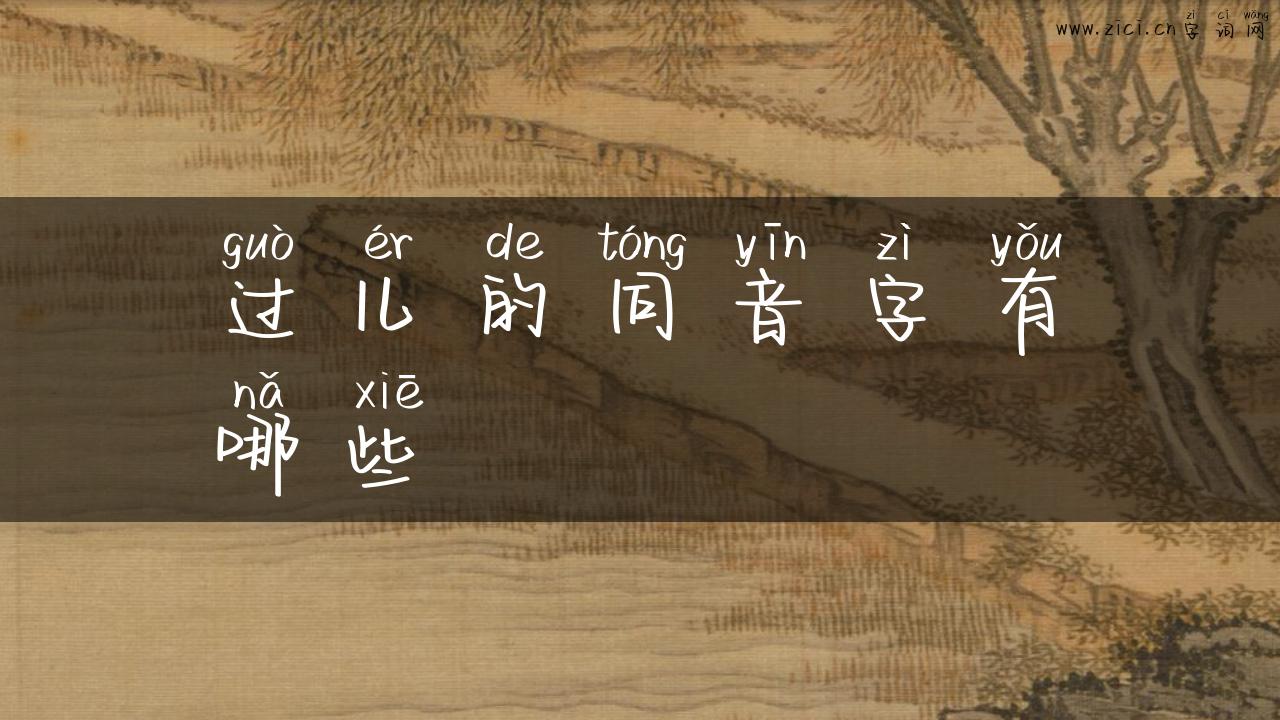 zì cí wǎng
www.zici.cn字词网
guò ér de tóng yīn zì yǒu
过儿的同音字有
nǎ xiē
哪些